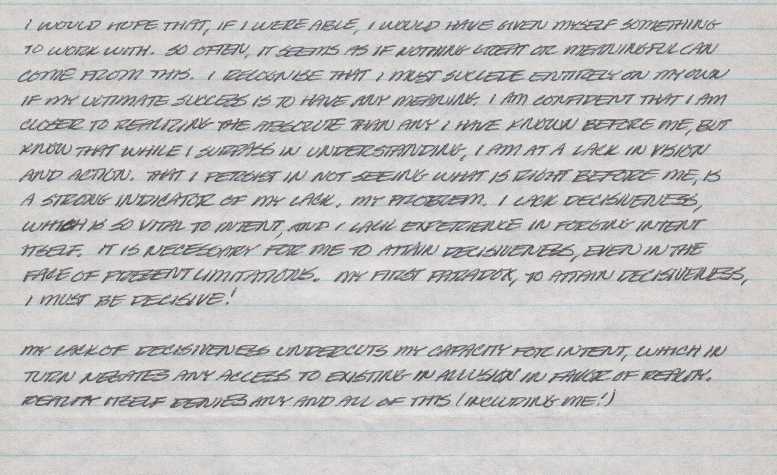 I WOULD HOPE THAT, IF I WERE ABLE, I WOULD HAVE GIVEN MYSELF SOMETHING
TO WORK WITH. SO OFTEN, IT SEEMS AS IF NOTHING GREAT OR MEANINGFUL CAN
COME FROM THIS. I RECOGNISE THAT I MUST SUCCEDE ENTIRELY ON MY OWN
IF MY ULTIMATE SUCCESS IS TO HAVE ANY MEANING. I AM CONFIDENT THAT I AM
CLOSER TO REALIZING THE ABSOLUTE THAN ANY I HAVE KNOWN BEFORE ME, BUT
KNOW THAT WHILE I SURPASS IN UNDERSTANDING, I AM AT A LACK IN VISION
AND ACTION. THAT I PERSIST IN NOT SEEING WHAT IS RIGHT BEFORE ME, IS
A STRONG INDICATOR OF MY LACK. MY PROBLEM. I LACK DECISIVENESS,
WHICH IS SO VITAL TO INTENT, AND I LACK EXPERIENCE IN FORGING INTENT
ITSELF. IT IS NECESSARY FOR ME TO ATTAIN DECISIVENESS, EVEN IN THE
FACE OF PRESENT LIMITATIONS. MY FIRST PARADOX, TO ATTAIN DECISIVENESS,
I MUST BE DECISIVE!
MY LACK OF DECISIVENESS UNDERCUTS MY CAPACITY FOR INTENT, WHICH IN
TURN NEGATES ANY ACCESS TO EXISTING IN ALLUSION IN FAVOR OF REALITY.
REALITY ITSELF DENIES ANY AND ALL OF THIS (INCLUDING ME!)